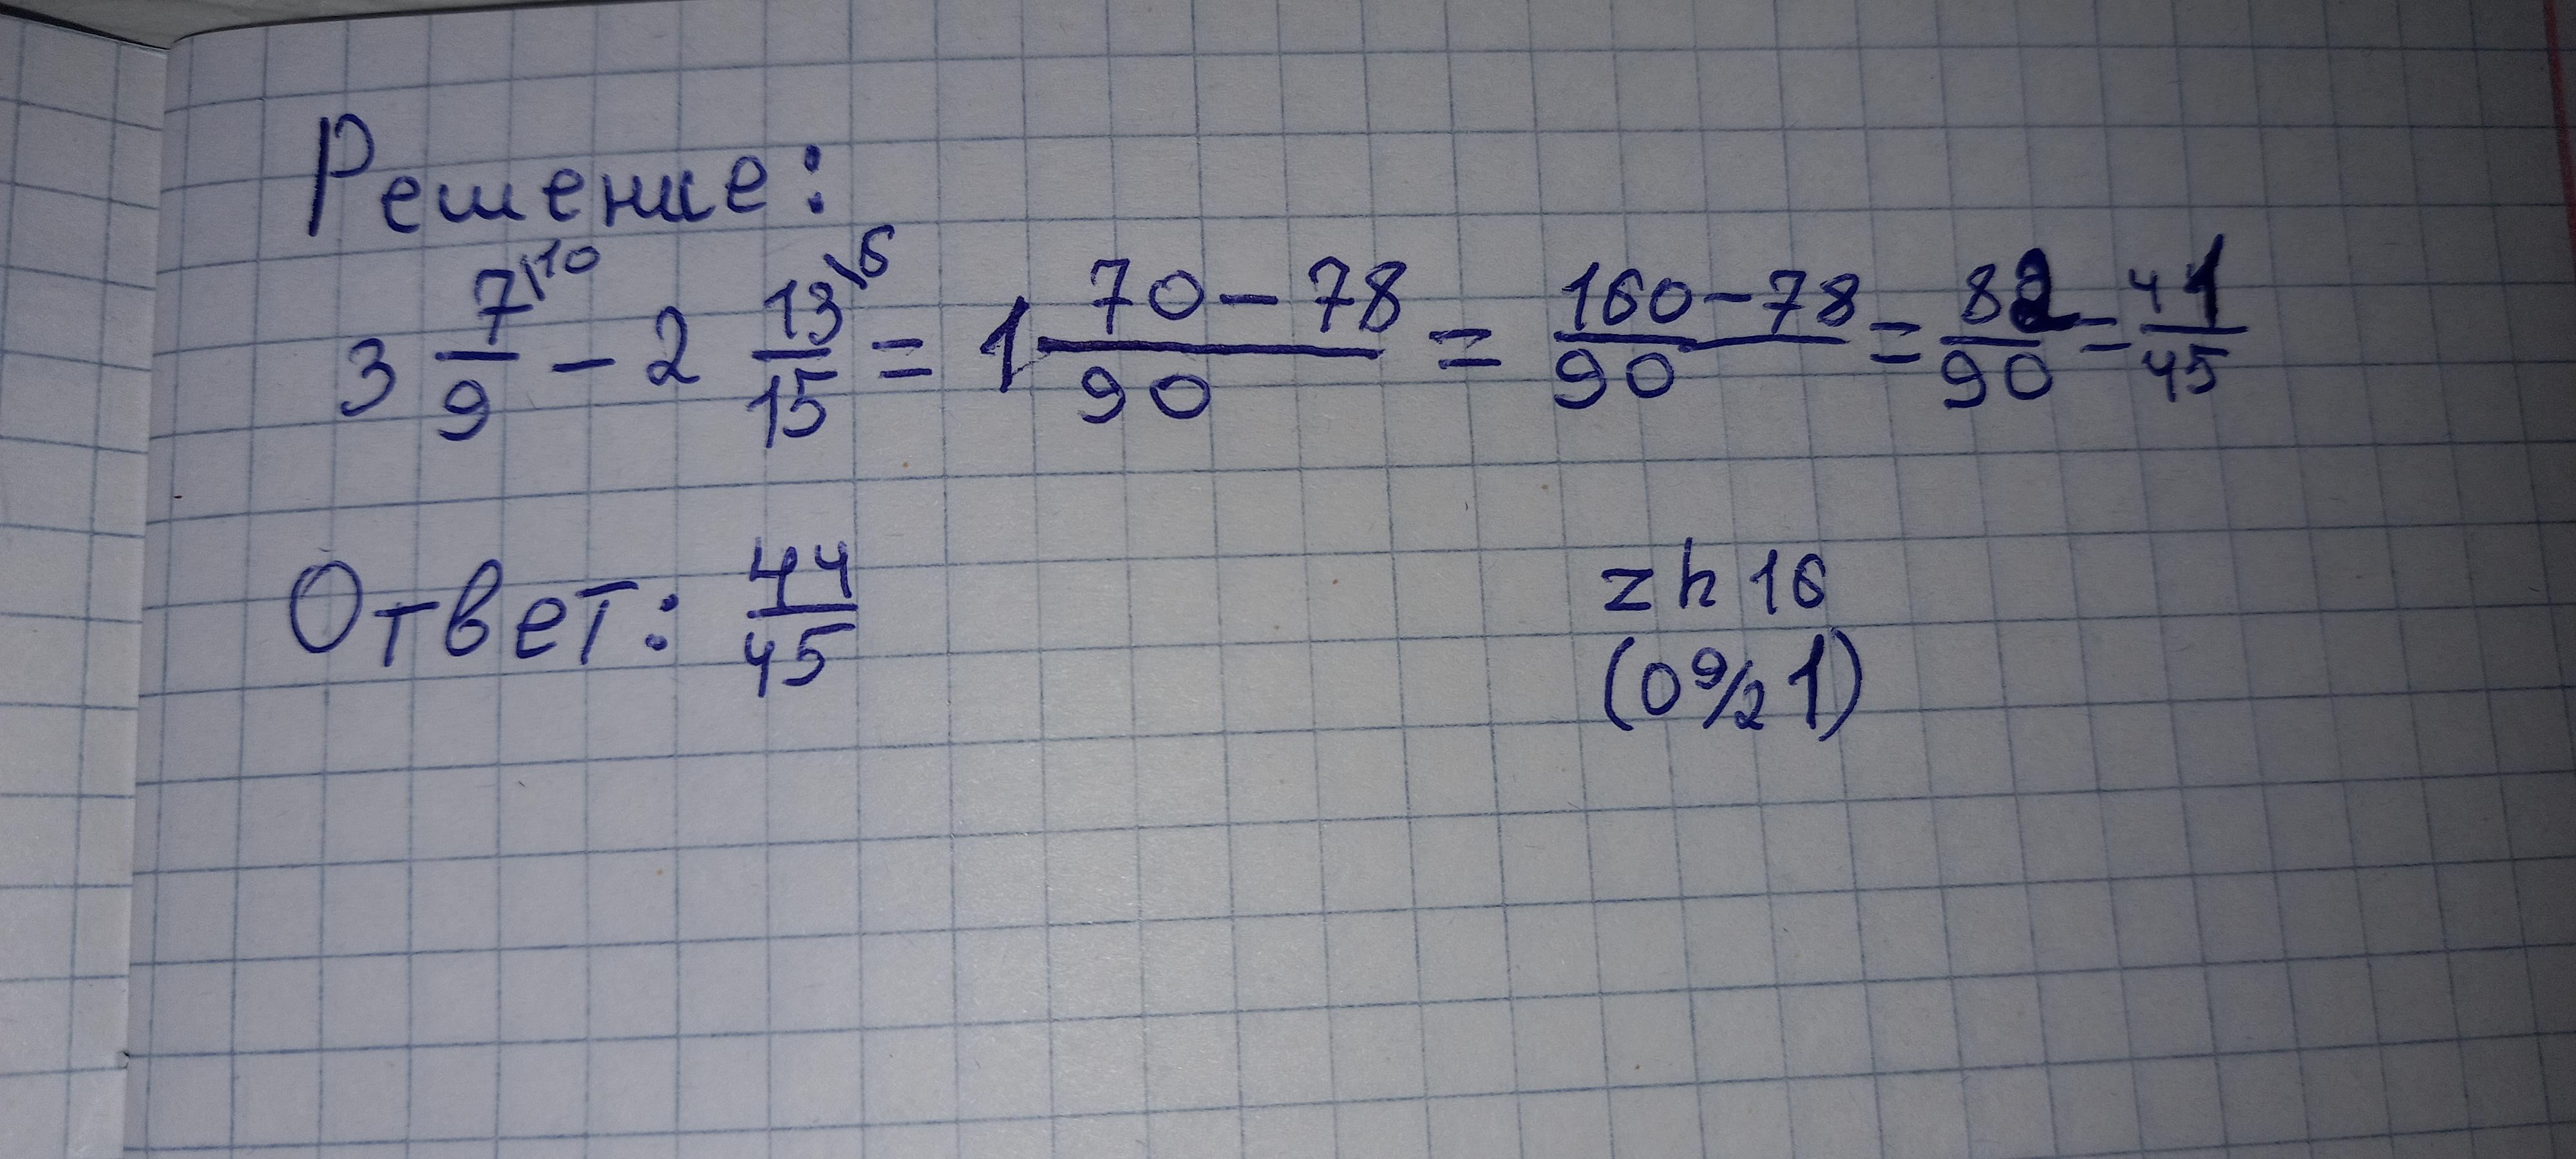 Решение:
3 7\10/9 − 2 13\6/15 = 1 70−78/90 = 160−78/90 = 82/90 = 41/45
Ответ: 44/45
zh 16
(0 9/2 1)